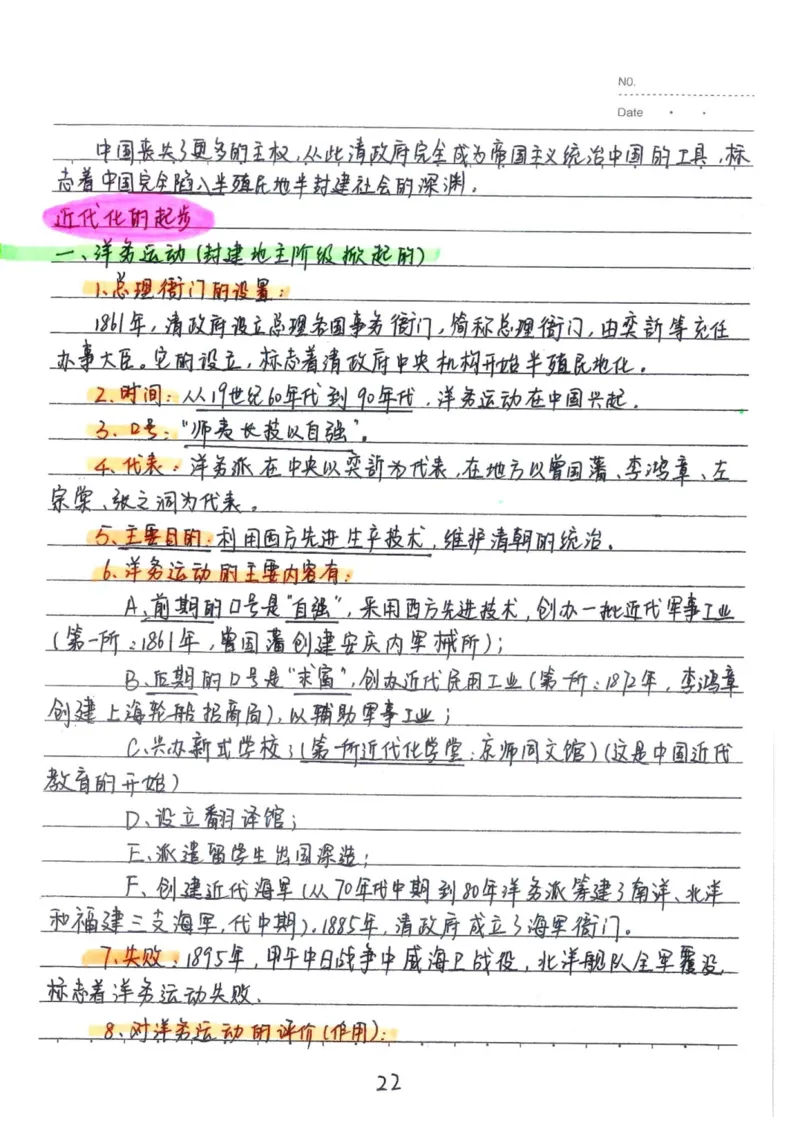 NO.
Date
中国丧失了更多的主权,从此清政府完全成为帝国主义统治中国的工具,标
志着中国完全陷入半殖民地半封建社会的深渊。
近代化的起步
一、洋务运动(封建地主阶级掀起的)
1、总理衙门的设置:
1861年,清政府设立总理各国事务衙门,简称总理衙门,由奕訢等充任
办事大臣。它的设立,标志着清政府中央机构开始半殖民地化。
2、时间:从19世纪60年代到90年代,洋务运动在中国兴起。
3、口号:"师夷长技以自强"。
4、代表:洋务派在中央以奕訢为代表,在地方以曾国藩、李鸿章、左
宗棠、张之洞为代表。
5、主要目的:利用西方先进生产技术,维护清朝的统治。
6、洋务运动的主要内容有:
A、前期的口号是"自强",采用西方先进技术,创办一批近代军事工业
(第一所:1861年,曾国藩创建安庆内军械所);
B、后期的口号是"求富",创办近代民用工业(第一所:1872年,李鸿章
创建上海轮船招商局),以辅助军事工业;
C、兴办新式学校;(第一所近代化学堂:京师同文馆)(这是中国近代
教育的开始)
D、设立翻译馆;
E、派遣留学生出国深造;
F、创建近代海军(从70年代中期到80年洋务派筹建了南洋、北洋
和福建三支海军,代中期)。1885年,清政府成立了海军衙门。
7、失败:1895年,甲午中日战争中威海卫战役,北洋舰队全军覆没
标志着洋务运动失败.
8、对洋务运动的评价(作用):
22